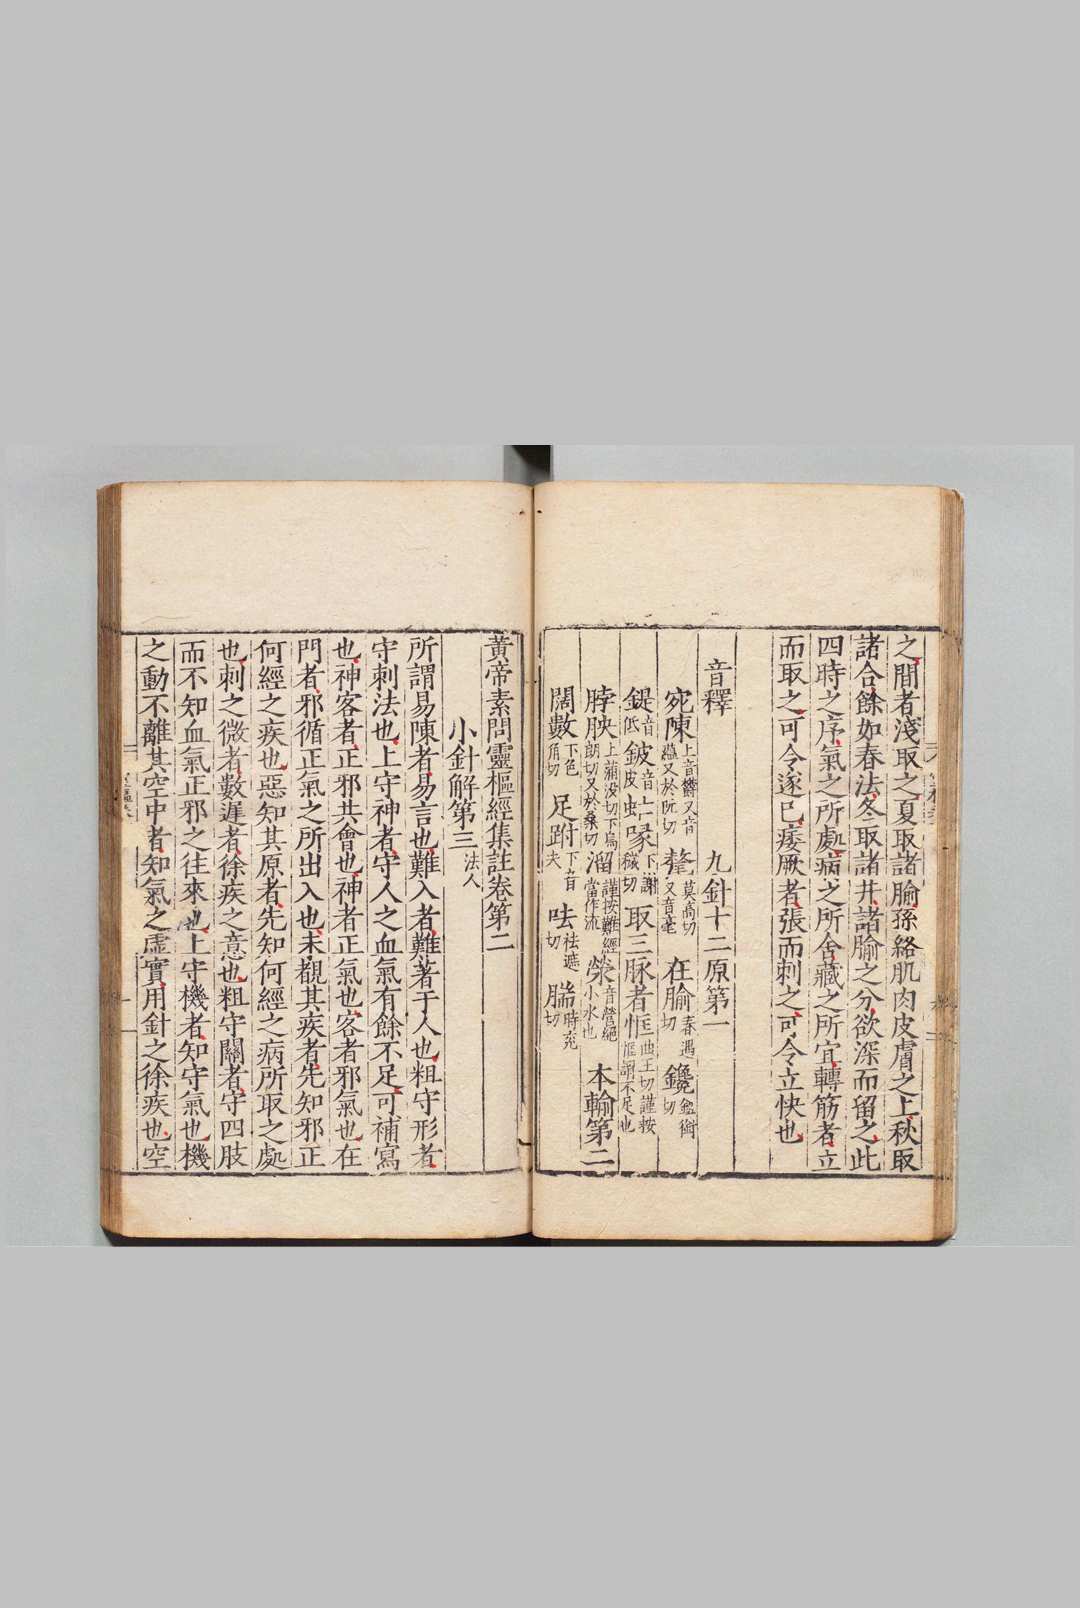 之間者淺取之夏取諸腧孫絡肌肉皮膚之上秋取
諸合餘如春法冬取諸井諸腧之分欲深而留之此
四時之序氣之所處病之所舍藏之所宜轉筋者立
而取之可令遂已痿厥者張而刺之可令立快也
音釋
九針十二原第一
宛陳上音鬱又音蘊又於阮切 氂莫高切又音毫 在腧春遇切 鑱鋤銜切
鍉音低 鈹音皮 蚑喙下謝穢切 取三脉者恇曲王切謹按恇謂不足也
脖胦上蒲没切下烏朗切又於桑切 溜謹按難經當作流 滎音營絕小水也 本輸第二
闊數下色角切 足跗下音夫 呿祛遮切 腨時兖切
黃帝素問靈樞經集註卷第二
小針解第三法人
所謂易陳者易言也難入者難著于人也粗守形者
守刺法也上守神者守人之血氣有餘不足可補寫
也神客者正邪共會也神者正氣也客者邪氣也在
門者邪循正氣之所出入也未覩其疾者先知邪正
何經之疾也惡知其原者先知何經之病所取之處
也刺之微者數遲者徐疾之意也粗守關者守四肢
而不知血氣正邪之往來也上守機者知守氣也機
之動不離其空中者知氣之虛實用針之徐疾也空